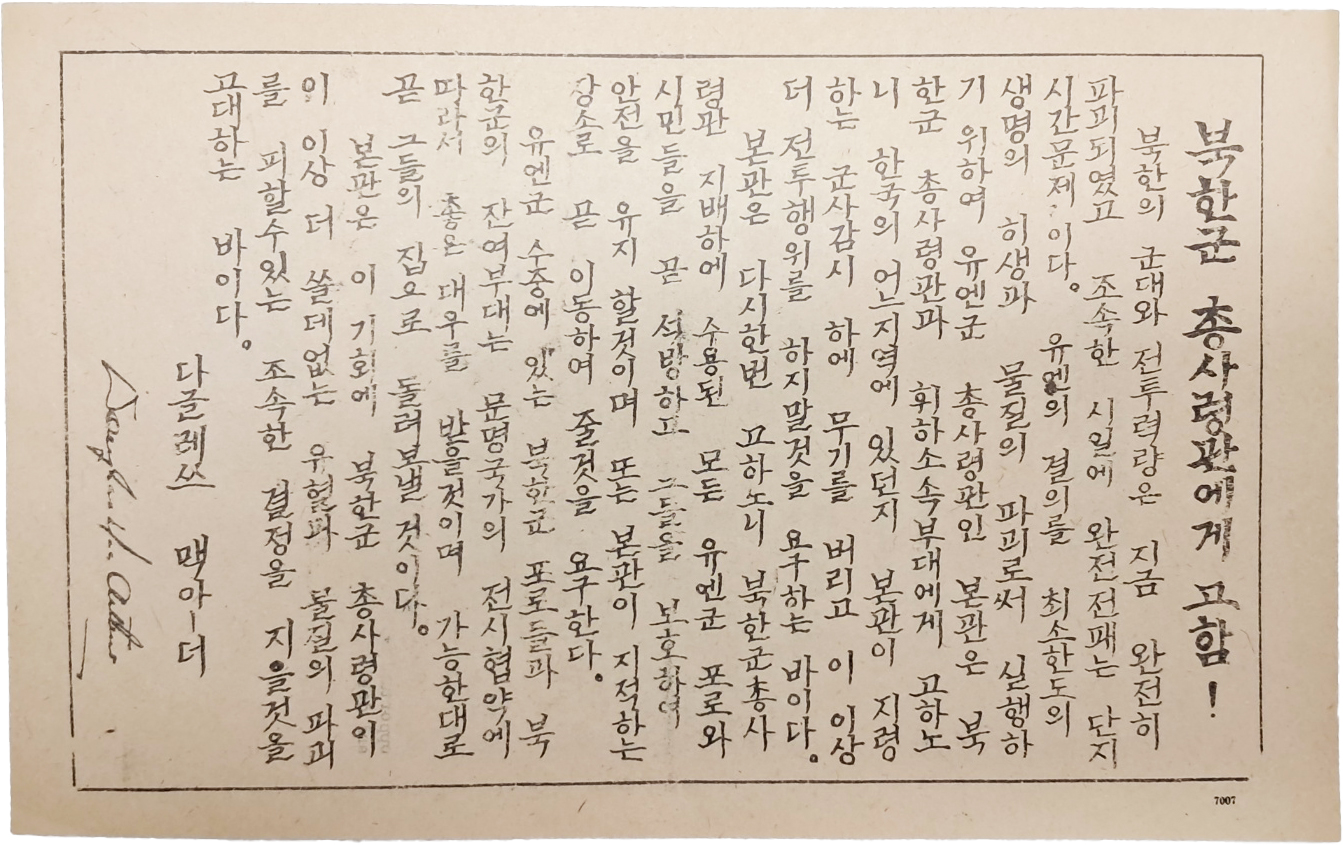 북한군 총사령관에게 고함!
북한의 군대와 전투력량은 지금 완전히
파괴되였고 조속한 시일에 완전전패는 단지
시간문제이다。 유엔의 결의를 최소한도의
생명의 히생과 물질의 파괴로써 실행하
기 위하여 유엔군 총사령관인 본관은 북
한군 총사령관과 휘하소속부대에게 고하노
니 한국의 어느지역에 있던지 본관이 지령
하는 군사감시 하에 무기를 버리고 이 이상
더 전투행위를 하지말것을 요구하는 바이다。
본관은 다시한번 고하노니 북한군총사
령관 지배하에 수용된 모든 유엔군 포로와
시민들을 곧 석방하고 그들을 보호하여
안전을 유지 할것이며 또는 본관이 지적하는
장소로 곧 이동하여 줄것을 요구한다。
유엔군 수중에 있는 북한군 포로들과 북
한군의 잔여부대는 문명국가의 전시협약에
따라서 좋은 대우를 받을것이며 가능한대로
곧 그들의 집으로 돌려보낼 것이다。
본관은 이 기회에 북한군 총사령관이
이 이상 더 쓸데없는 유혈과 물질의 파괴
를 피할수있는 조속한 결정을 지을것을
고대하는 바이다。
다글레쓰 맥아-더
Douglas MacArthur
7007